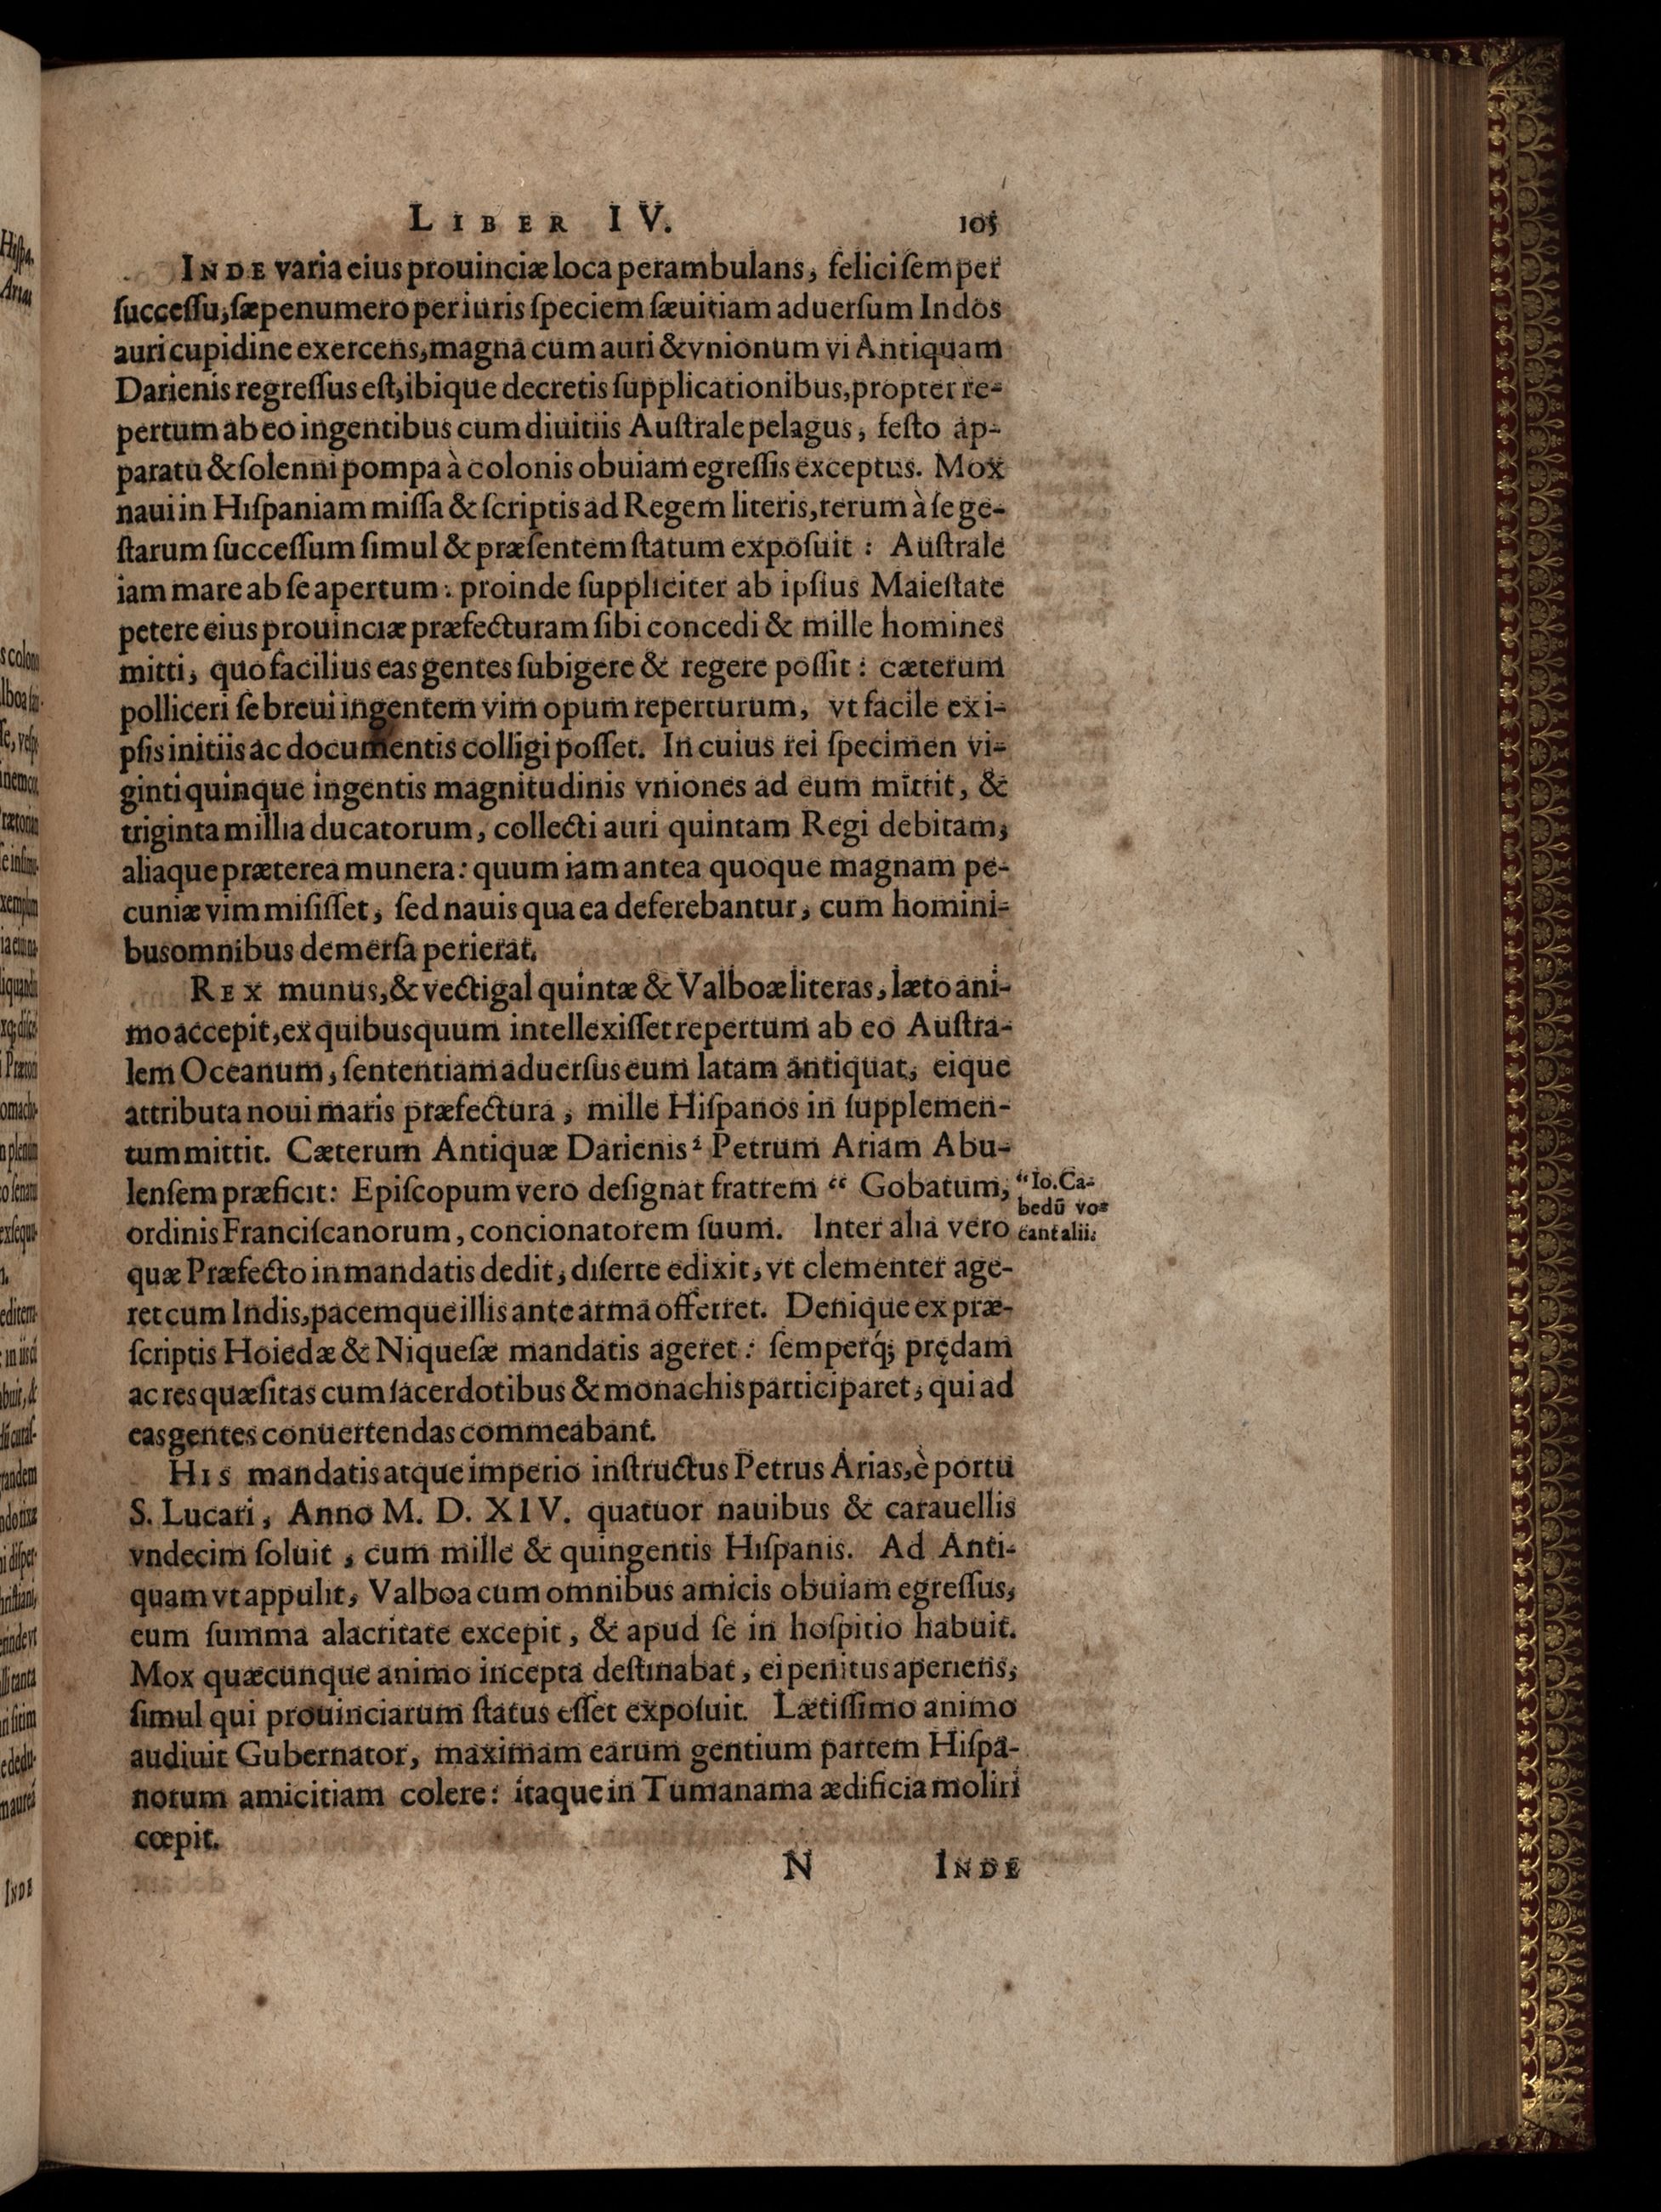 LIBER IV. 105
INDE varia eius prouinciæ loca perambulans, felici ſemper
ſucceſſu, ſæpenumero per iuris ſpeciem ſæuitiam aduerſum Indos
auri cupidine exercens, magna cum auri & vnionum vi Antiquam
Darienis regreſſus eſt, ibique decretis ſupplicationibus, propter re-
pertum ab eo ingentibus cum diuitiis Auſtrale pelagus, feſto ap-
paratu & ſolenni pompa à colonis obuiam egreſſis exceptus. Mox
naui in Hiſpaniam miſſa & ſcriptis ad Regem literis, rerum à ſe ge-
ſtarum ſucceſſum ſimul & præſentem ſtatum expoſuit: Auſtrale
iam mare ab ſe apertum: proinde ſuppliciter ab ipſius Maieſtate
petere eius prouinciæ præfecturam ſibi concedi & mille homines
mitti, quo facilius eas gentes ſubigere & regere poſſit: cæterum
polliceri ſe breui ingentem vim opum reperturum, vt facile ex i-
pſis initiis ac documentis colligi poſſet. In cuius rei ſpecimen vi-
ginti quinque ingentis magnitudinis vniones ad eum mittit, &
triginta millia ducatorum, collecti auri quintam Regi debitam,
aliaque præterea munera: quum iam antea quoque magnam pe-
cuniæ vim miſiſſet, ſed nauis qua ea deferebantur, cum homini-
bus omnibus demerſa perierat.
REX munus, & vectigal quintæ & Valboæ literas, læto ani-
mo accepit, ex quibus quum intellexiſſet repertum ab eo Auſtra-
lem Oceanum, ſententiam aduerſus eum latam antiquat, eique
attributa noui maris præfectura, mille Hiſpanos in ſupplemen-
tum mittit. Cæterum Antiquæ Darienis² Petrum Ariam Abu-
lenſem præficit: Epiſcopum vero deſignat fratrem “ Gobatum,
“Io. Ca-
bedū vo-
cant alii.
ordinis Franciſcanorum, concionatorem ſuum. Inter alia vero
quæ Præfecto in mandatis dedit, diſerte edixit, vt clementer age-
ret cum Indis, pacemque illis ante arma offerret. Denique ex præ-
ſcriptis Hoiedæ & Niqueſæ mandatis ageret: ſemperq́; prędam
ac res quæſitas cum ſacerdotibus & monachis participaret, qui ad
eas gentes conuertendas commeabant.
HIS mandatis atque imperio inſtructus Petrus Arias, è portu
S. Lucari, Anno M. D. XIV. quatuor nauibus & carauellis
vndecim ſoluit, cum mille & quingentis Hiſpanis. Ad Anti-
quam vt appulit, Valboa cum omnibus amicis obuiam egreſſus,
eum ſumma alacritate excepit, & apud ſe in hoſpitio habuit.
Mox quæcunque animo incepta deſtinabat, ei penitus aperiens,
ſimul qui prouinciarum ſtatus eſſet expoſuit. Lætiſſimo animo
audiuit Gubernator, maximam earum gentium partem Hiſpa-
norum amicitiam colere: itaque in Tumanama ædificia moliri
cœpit.
N INDE